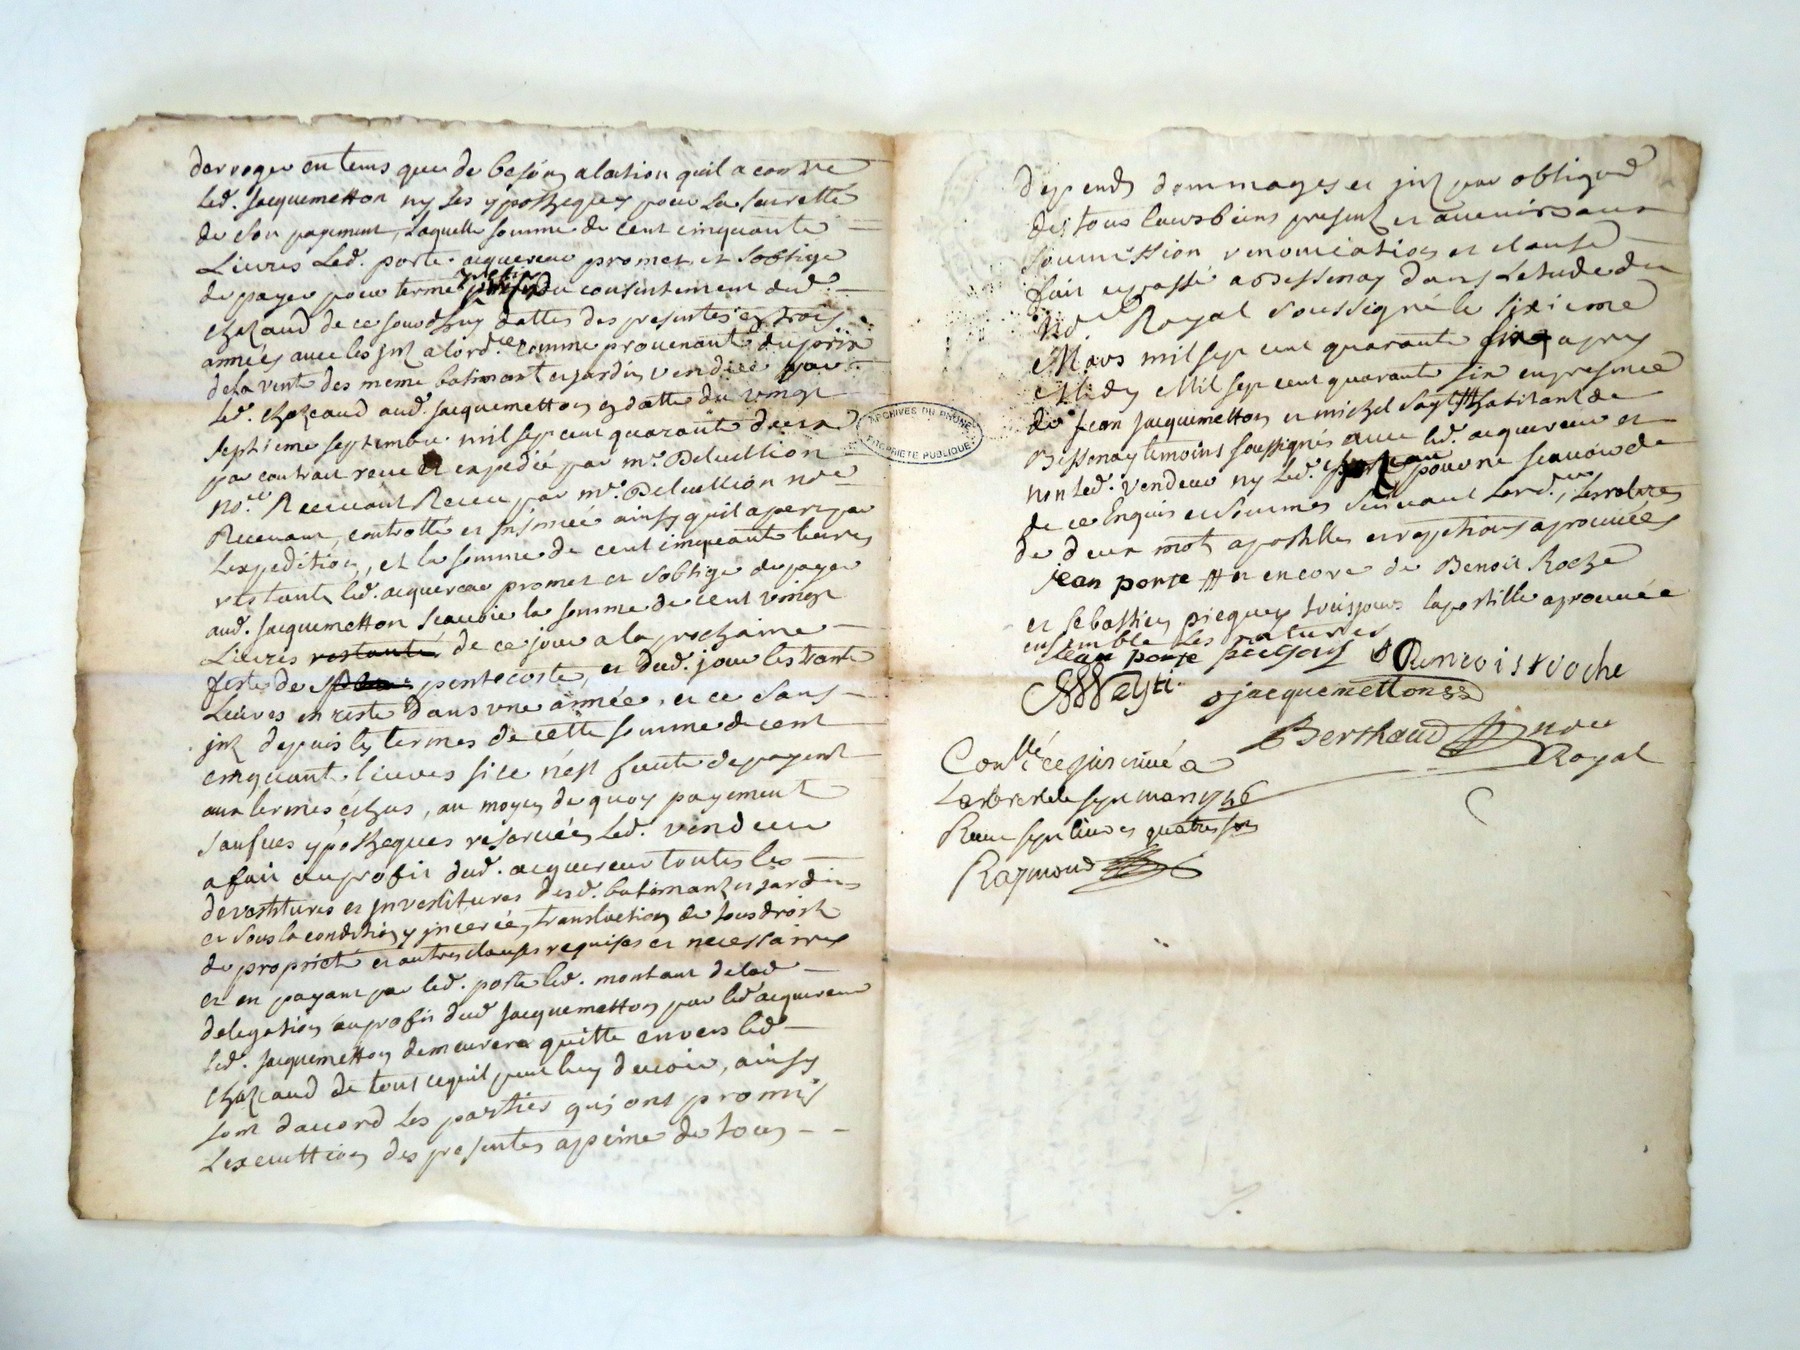 derroger en tems que de besoin a laction quil a contre
led. Jacquemetton ny les ypotheques pour la seurette
de son payement, laquelle somme de cent cinquante
Livres Led. porte acquereur promet et soblige
de payer pour terme du consentement dud.
Chazaud de ce jourdhuy datte des presentes en trois
années avec les jnz a lord.ce comme provenant du prix
de la vente des meme batimant et jardin vendies par
led. Chazeaud aud. Jacquemetton en datte du vingt
septieme septembre mil sept cent quarante deux
par contrait receu et expedié par me. Delullion
no.re Recevant Receu par me. Delullion nore
Recevant, controllé et insinué ainsy quil apert par
Lexpedition, et la somme de cent cinqeante livres
restante led. acquereur promet et soblige de payer
aud. Jacquemetton scavoir la somme de cent vingt
Livres restante de ce jour a la prochaine
feste de pentecoste, et dud. jour les trante
Livres en reste dans une année, et ce sans
jnz depuis les termes de cette somme de cent
cinquant livres si ce n'est faute de payent
aux termes échus, au moyen de quoy payement
sauf ses ypotheques reservées led. vendeur
a fait au profit dud. acquereur toutes les
devestitures et jnvestitures desd. batimantz et jardin
et sous la condition y jncerée, translaction de tous droits
de propriete et autres clauses requises et necessaires
et en payant par led. porte led. montant de lad
delegation au profit dud Jacquemetton par led acquereur
led. Jacquemetton demeurera quitte envers led
Chazeaud de tout ce quil peut luy devoir, ainsy
sont daccord les parties qui ont promis
Lexecuttion des presentes a peine de tous
depends dommages et jnz par obligé
de tous leurs biens presentz et avenir sous
soumission renonciation et clause
fait et passé a Bessenay dans Letude du
No.re Royal soussigné le sixieme
Mars mil sept cent quarante six apres
Midy Mil sept cent quarante six en presence
de Jean Jacquemetton et michel Sayt # habitant de
Bessenay temoins soussignés avec led. acquereur et
non led. vendeur ny led. Chazeau pour ne scavoir de
de ce Enquis et sommés suivant Lord.ce, les ratures
de deux mots apostilles et reptions aprouvées
jean porte # et encore de Benoit Roche
et sebastien piequey lapostille aprouvée
ensemble les ratures
jean porte francois roche
Jacquemetton
Berthaud nore
Royal
Con.llé et jnsinué a
Larbresle le sept mars 1746
Receu sept livres quatre sols
Raymond
ARCHIVES DU RHÔNE
PROPRIÉTÉ PUBLIQUE